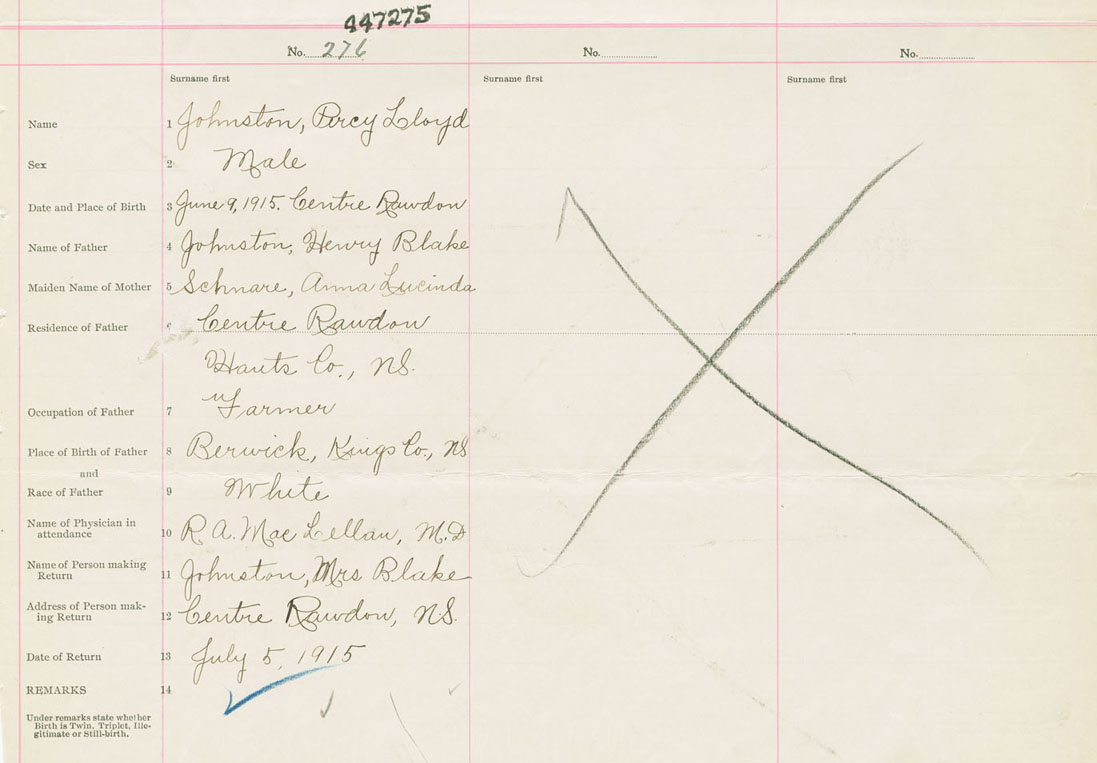 447275
No. 276 No. No.
Surname first Surname first Surname first
Name 1 Johnston, Percy Lloyd
Sex 2 Male
Date and Place of Birth 3 June 9, 1915. Centre Rawdon
Name of Father 4 Johnston, Henry Blake
Maiden Name of Mother 5 Schnare, Anna Lucinda
Residence of Father 6 Centre Rawdon
Hants Co., NS.
Occupation of Father 7 Farmer
Place of Birth of Father 8 Berwick, Kings Co., NS
and
Race of Father 9 White
Name of Physician in
attendance 10 R. A. MacLellan, M.D
Name of Person making
Return 11 Johnston, Mrs Blake
Address of Person mak-
ing Return 12 Centre Rawdon, N.S.
Date of Return 13 July 5, 1915
REMARKS 14
Under remarks state whether
Birth is Twin, Triplet, Ille-
gitimate or Still-birth.